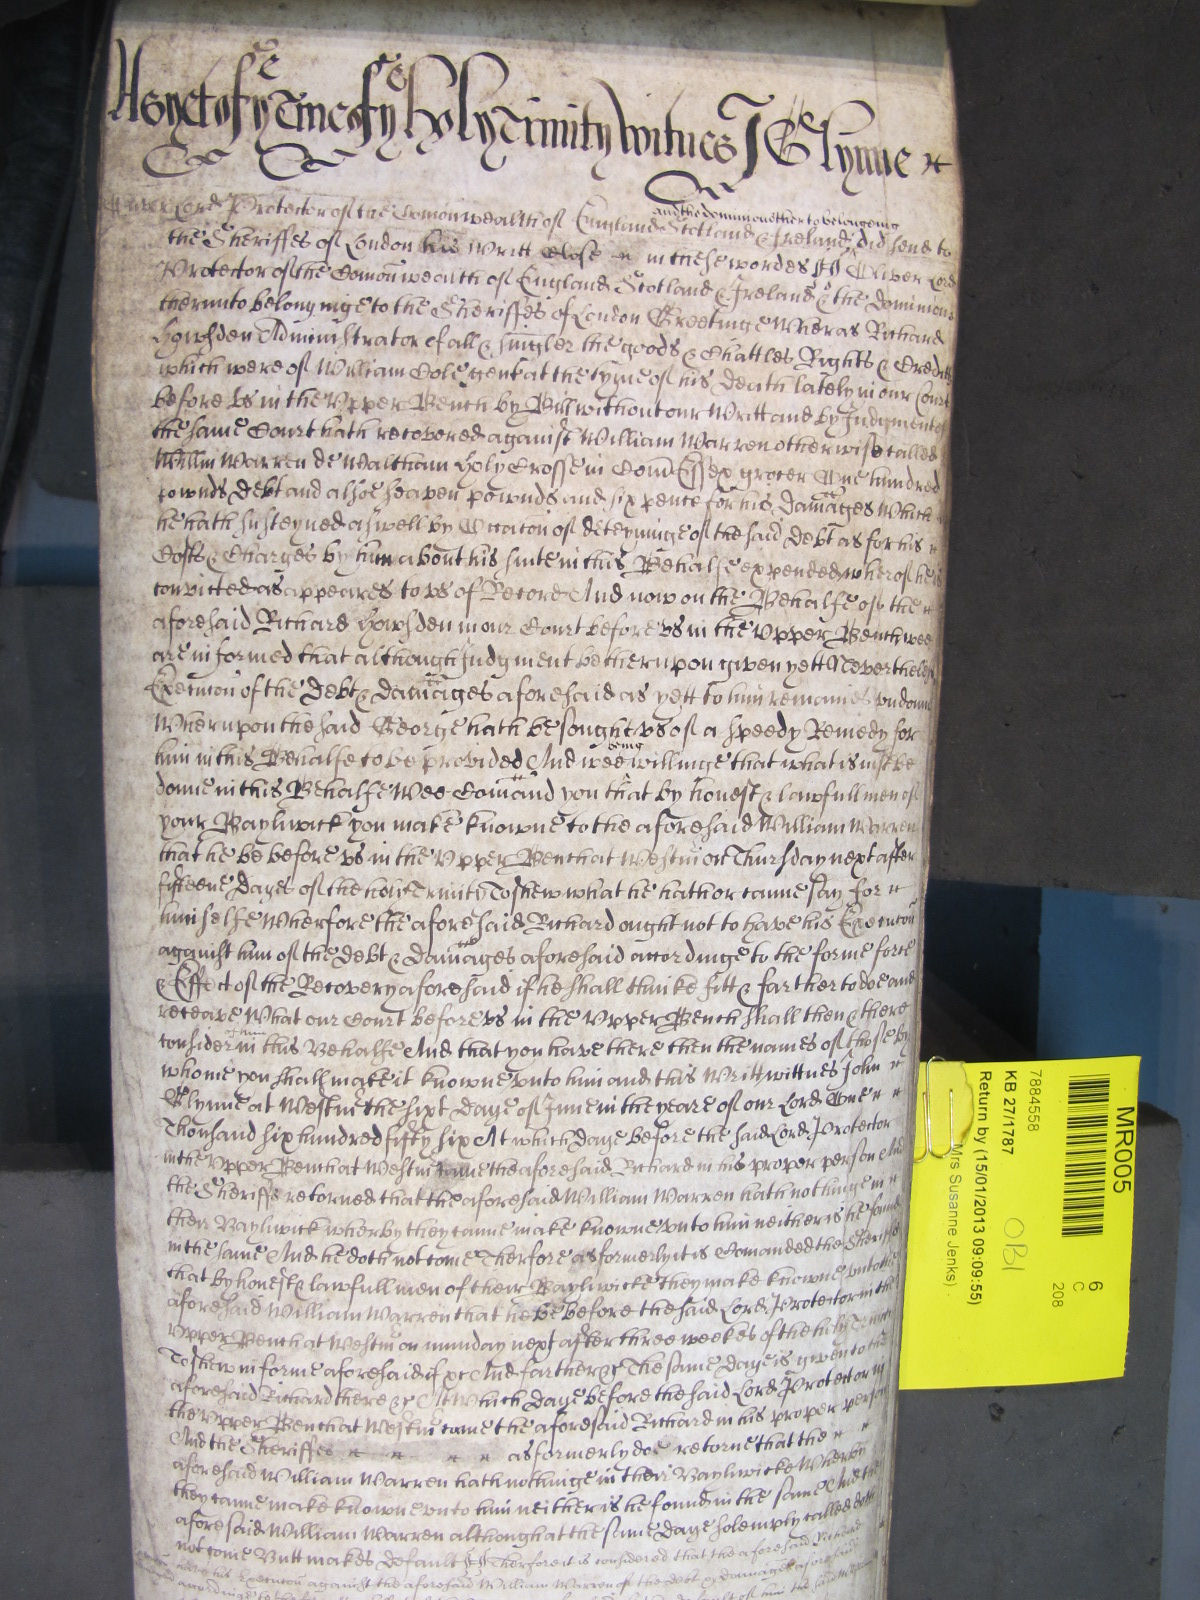 As yet of ye Terme of ye holy Trinity Witnes J Glynne
Lord Protector of the Comonwealth of England Scotland & Ireland and the dominions therto belongeing did send to
the Sheriffes of London his Writt Close in these wordes SS Oliver Lord
Protector of the Comonwealth of England Scotland & Ireland & the Dominions
therunto belonginge to the Sheriffes of London Greetinge Wheras Richard
Howsden Administrator of all & singler the goods & Chattles Rights & Credits
which were of William Cole gent at the tyme of his Death lately in our Court
before us in the Upper Bench by Bill without our Writt and by Judgment of
the same Court hath recovered against William Warren otherwise called
Willm Warren de Waltham Holy Crosse in Com Essex grocer One hundred
pownds Debt and alsoe seaven pownds and six pence for his Damages which
he hath susteyned aswell by Occacon of deteyninge of the said Debt as for his
Costs & Charges by him about his suite in this Behalfe expended wherof he is
convicted as appeares to us of Record And now on the Behalfe of the
aforesaid Richard Howsden in our Court before us in the Upper Bench wee
are informed that although Judgment be therupon given yett Neverthelesse
Execucon of the Debt & Damages aforesaid as yett to him remaines undonne
Wherupon the said George hath besought us of a speedy Remedy for
him in this Behalfe to be provided And wee being willinge that what is just be
donne in this Behalfe Wee Comand you that by honest & lawfull men of
your Bayliwick you make knowne to the aforesaid William Warren
that he be before us in the Upper Bench at Westm on Thursday next after
fifteene Dayes of the holy Trinity To shew what he hath or canne say for
himselfe Wherfore the aforesaid Richard ought not to have his Execucon
against him of the Debt & Damages aforesaid accordinge to the forme force
& Effect of the Recovery aforesaid if he shall thinke fitt & farther to doe and
receave What our Court before us in the Upper Bench shall then & there
consider of him in this Behalfe And that you have there then the names of those by
whome you shall make it knowne unto him and this Writt wittnes John
Glynne at Westm the sixt Daye of June in the yeare of our Lord One
Thousand six hundred fifty six At which Daye before the said Lord Protector
in the Upper Bench at Westm came the aforesaid Richard in his proper person And
the Sheriffs retorned that the aforesaid William Warren hath nothinge in
their Bayliwick wherby they canne make knowne unto him neither is he found
in the same And he doth not come Therfore as formerly it is Comanded the Sheriffes
that by honest & lawfull men of their Bayliwicke they make knowne unto the
aforesaid William Warren that he be before the said Lord Protector in the
Upper Bench at Westm on munday next after three weekes of the holy Trinity
To shew in forme aforesaid if &c And farther &c The same Daye is given to the
aforesaid Richard there &c At Which Daye before the said Lord Protector in
the Upper Bench at Westm came the aforesaid Richard in his proper person
And the Sheriffes as formerly doe retorne that the
aforesaid William Warren hath nothinge in their Bayliwicke Wherby
they canne make knowne unto him neither is he found in the same And the
aforesaid William Warren although at the same Daye solemply called doth
not come Butt makes default Therfore it is considered that the aforesaid Richard
have his Execucon against the aforesaid William Warren of the debt & damages aforesaid
MR005
6
C
208
7884558
KB 27/1787
OBl
Return by (15/01/2013 09:09:55)
Mrs Susanne Jenks